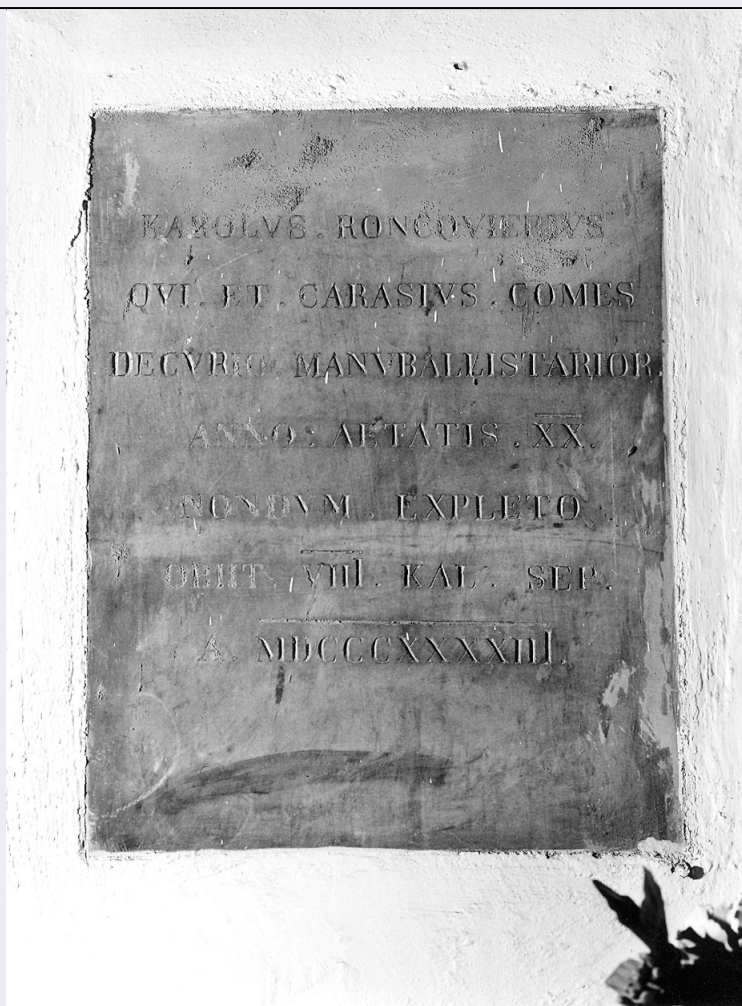 KAROLVS . RONCQVIERIVS
QVI . ET . CARASIVS . COMES
DECVRIO . MANVBALLISTARIOR.
ANNO : AETATIS . X̅X̅.
NONDVM . EXPLETO
OBIIT . V̅I̅I̅I̅I̅ . KAL . SEP.
A . M̅D̅C̅C̅C̅X̅X̅X̅X̅I̅I̅I̅I̅.